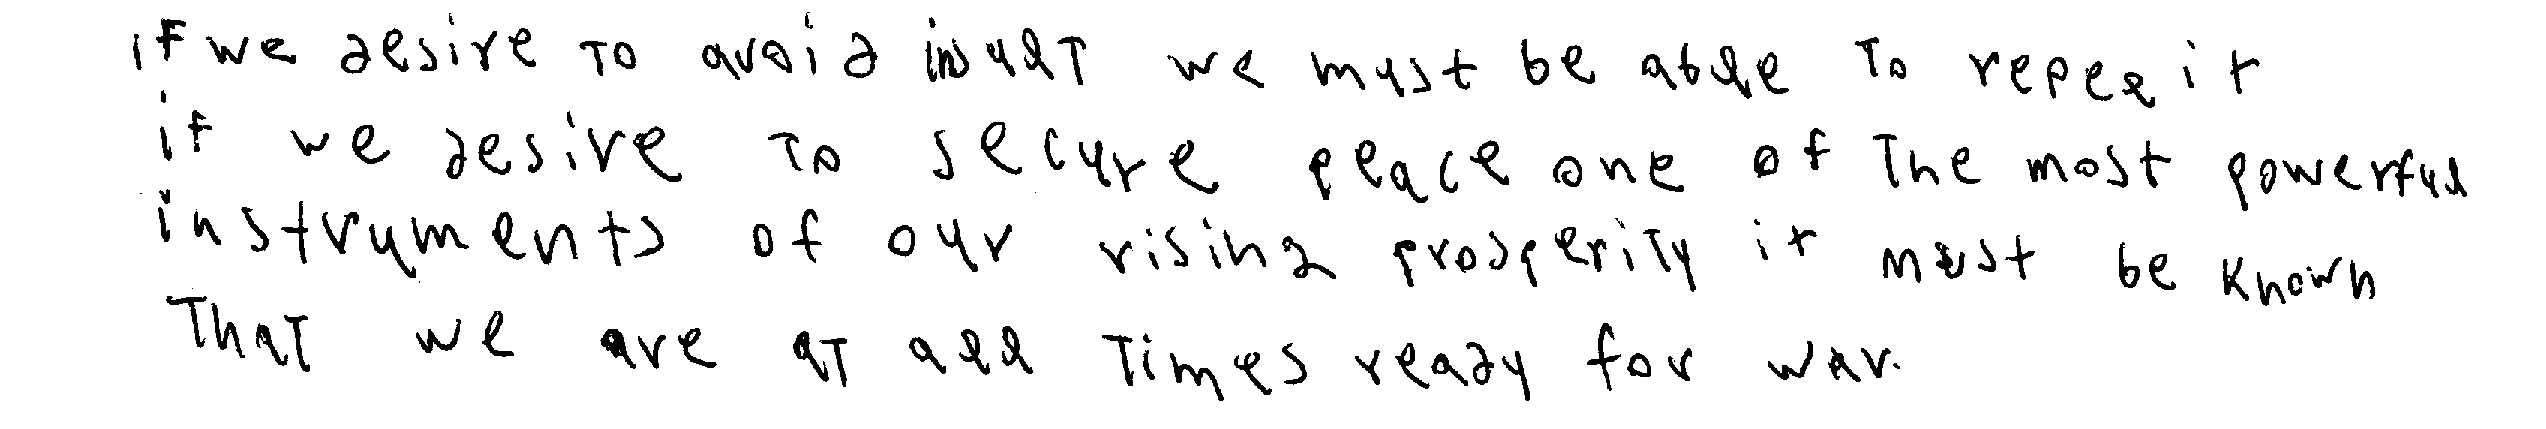 if we desire to avoid insult we must be able to repel it
if we desire to secure peace one of the most powerful
instruments of our rising prosperity it must be known
That we are at all times ready for war.